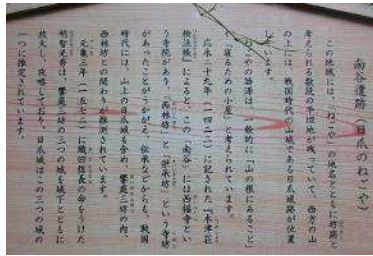 南谷遺跡（日爪のねごや）
この地域には、「ねごや」の地名とともに坊跡と
考えられる数段の平坦地が残っていて、西方の山
の上には、戦国時代の山城である日爪城跡が位置
しています。
ねごやの語源は、一般的に「山の根にあること」
「寝るための小屋」と考えられています。
応永二十九年（一四二二）に記された『木津荘
検注帳』によると、この「南谷」には西福寺とい
う寺院があり、「西林坊」と「伊米坊」という寺坊
があったことがうかがえ、伝承などからも、戦国
時代には、山上の日爪城も含め、饗庭三坊の内
西林坊との関わりが推測されています。
元亀三年（一五七二）に織田信長の命をうけた
明智光秀は、饗庭三坊の三つの城を城下とともに
放火し、攻略しており、日爪城はこの三つの城の
一つに推定されています。